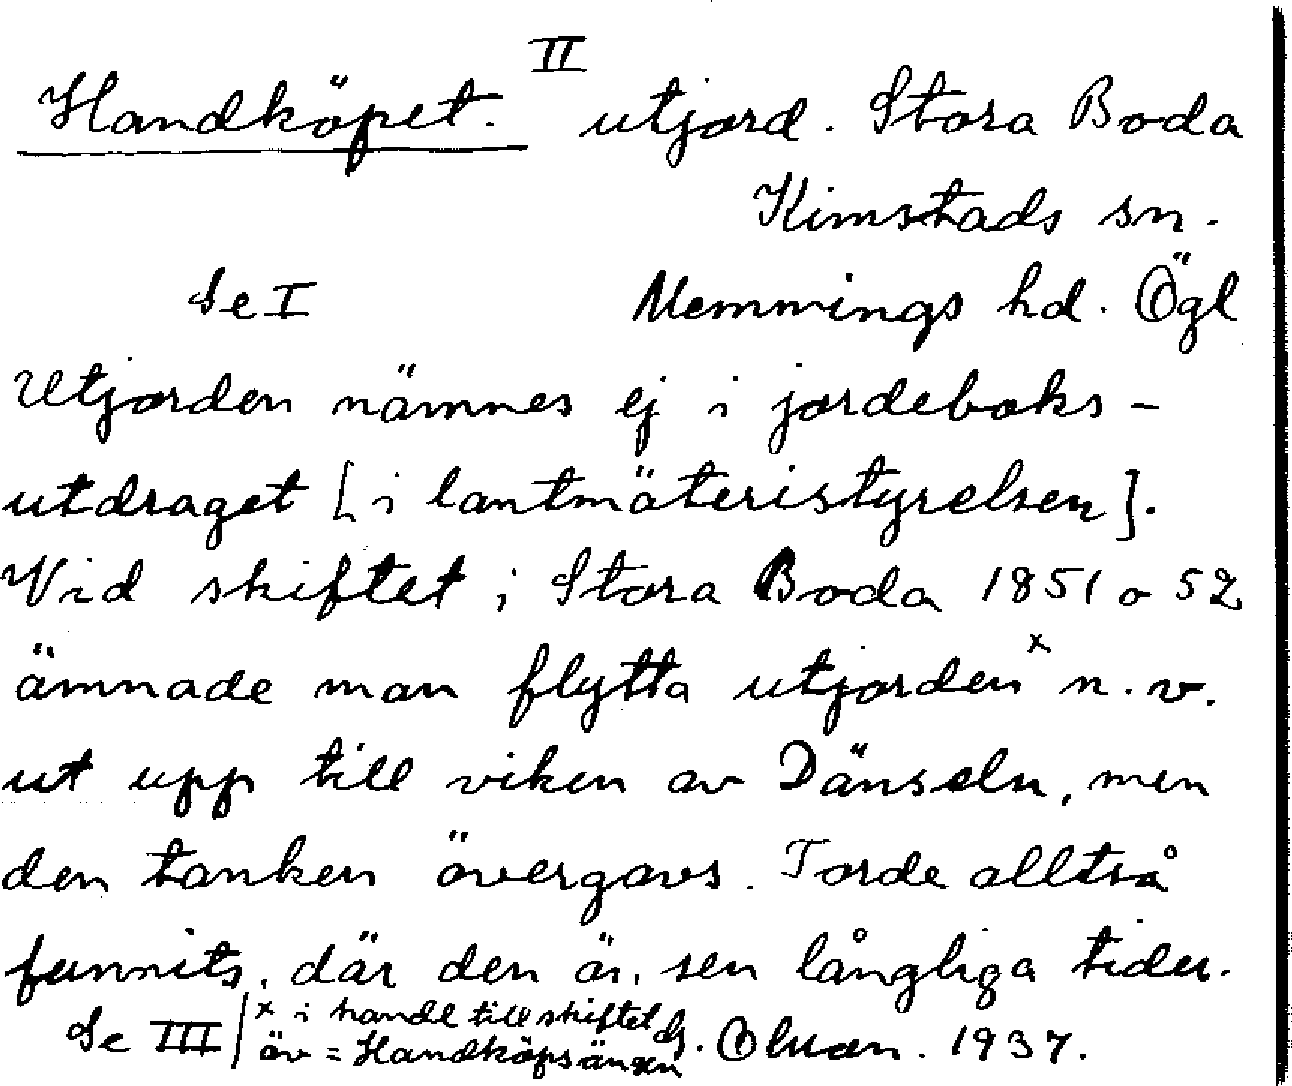 II
Handköpet. utjord. Stora Boda
Kimstads sn.
Se I Memmings hd. Ögl
Utjorden nämnes ej i jordeboks-
utdraget [i lantmäteristyrelsen].
Vid skiftet i Stora Boda 1851 o 52
ämnade man flytta utjorden x n. v.
ut upp till viken av Dänseln, men
den tanken övergavs. Torde alltså
funnits, där den är, sen långliga tider.
Se III x i handl till skiftet
äv = Handköpsängen G. Olsson. 1937.